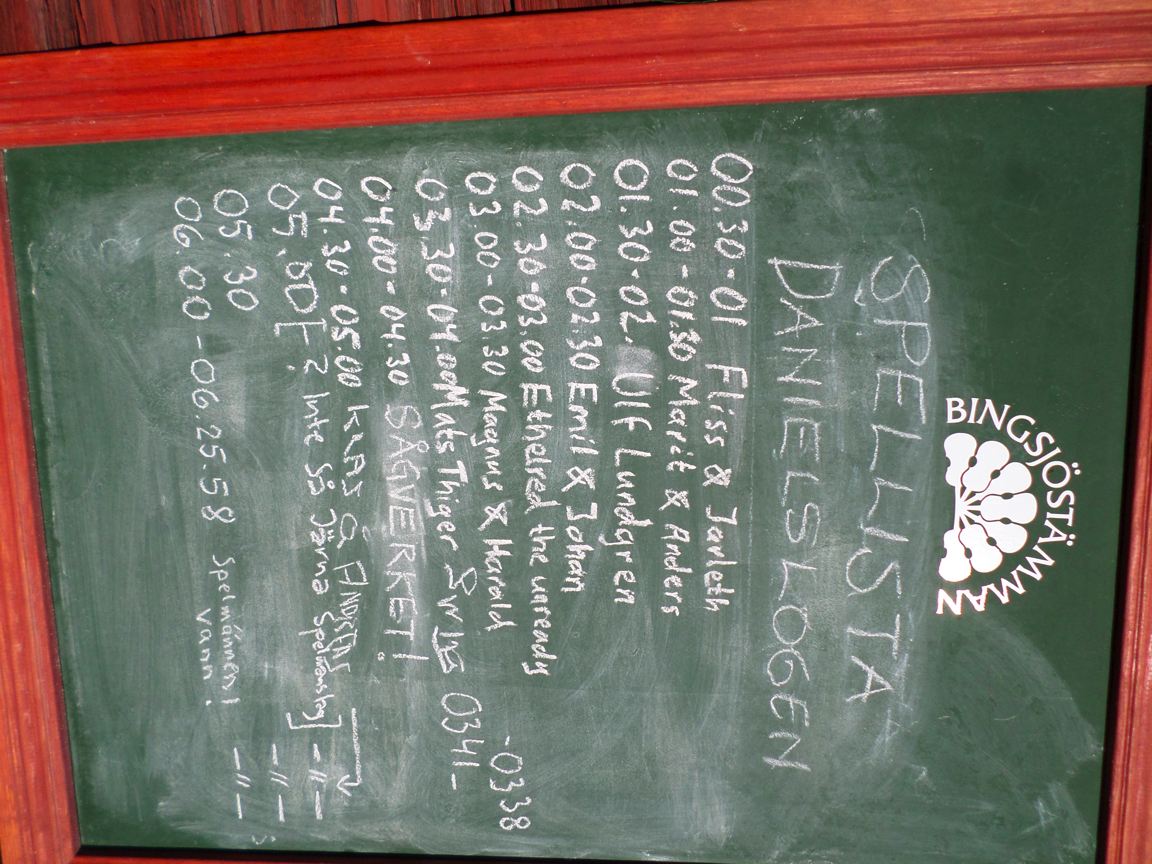 BINGSJÖSTÄMMAN
SPELLISTA
DANIELSLOGEN
00.30-01 Fliss & Jarleth
01.00-01.30 Marit & Anders
01.30-02. Ulf Lundgren
02.00-02.30 Emil & Johan
02.30-03.00 Ethelred the unready
03.00-03.30 Magnus & Harald -0338
03.30-04.00 Mats Thiger & 0341-
04.00-04.30 BÅGVERKET!
04.30-05.00 KLAS & ANDREAS
05.00 [F? Inte så Järna Spelmanslag] -"-
05.30 -"-
06.00-06.25.58 Spelmännen! vann! -"-